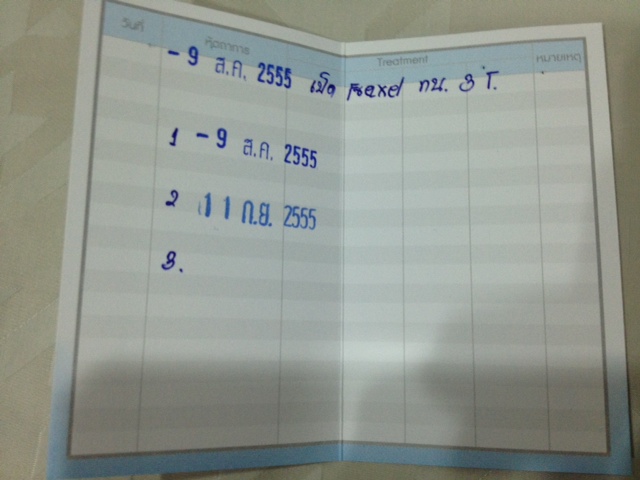 วันที่ หัตถการ Treatment หมายเหตุ
- 9 ส.ค. 2555 เปิด Fraxel ทน. 3 T.
1 - 9 ส.ค. 2555
2 11 ก.ย. 2555
3.